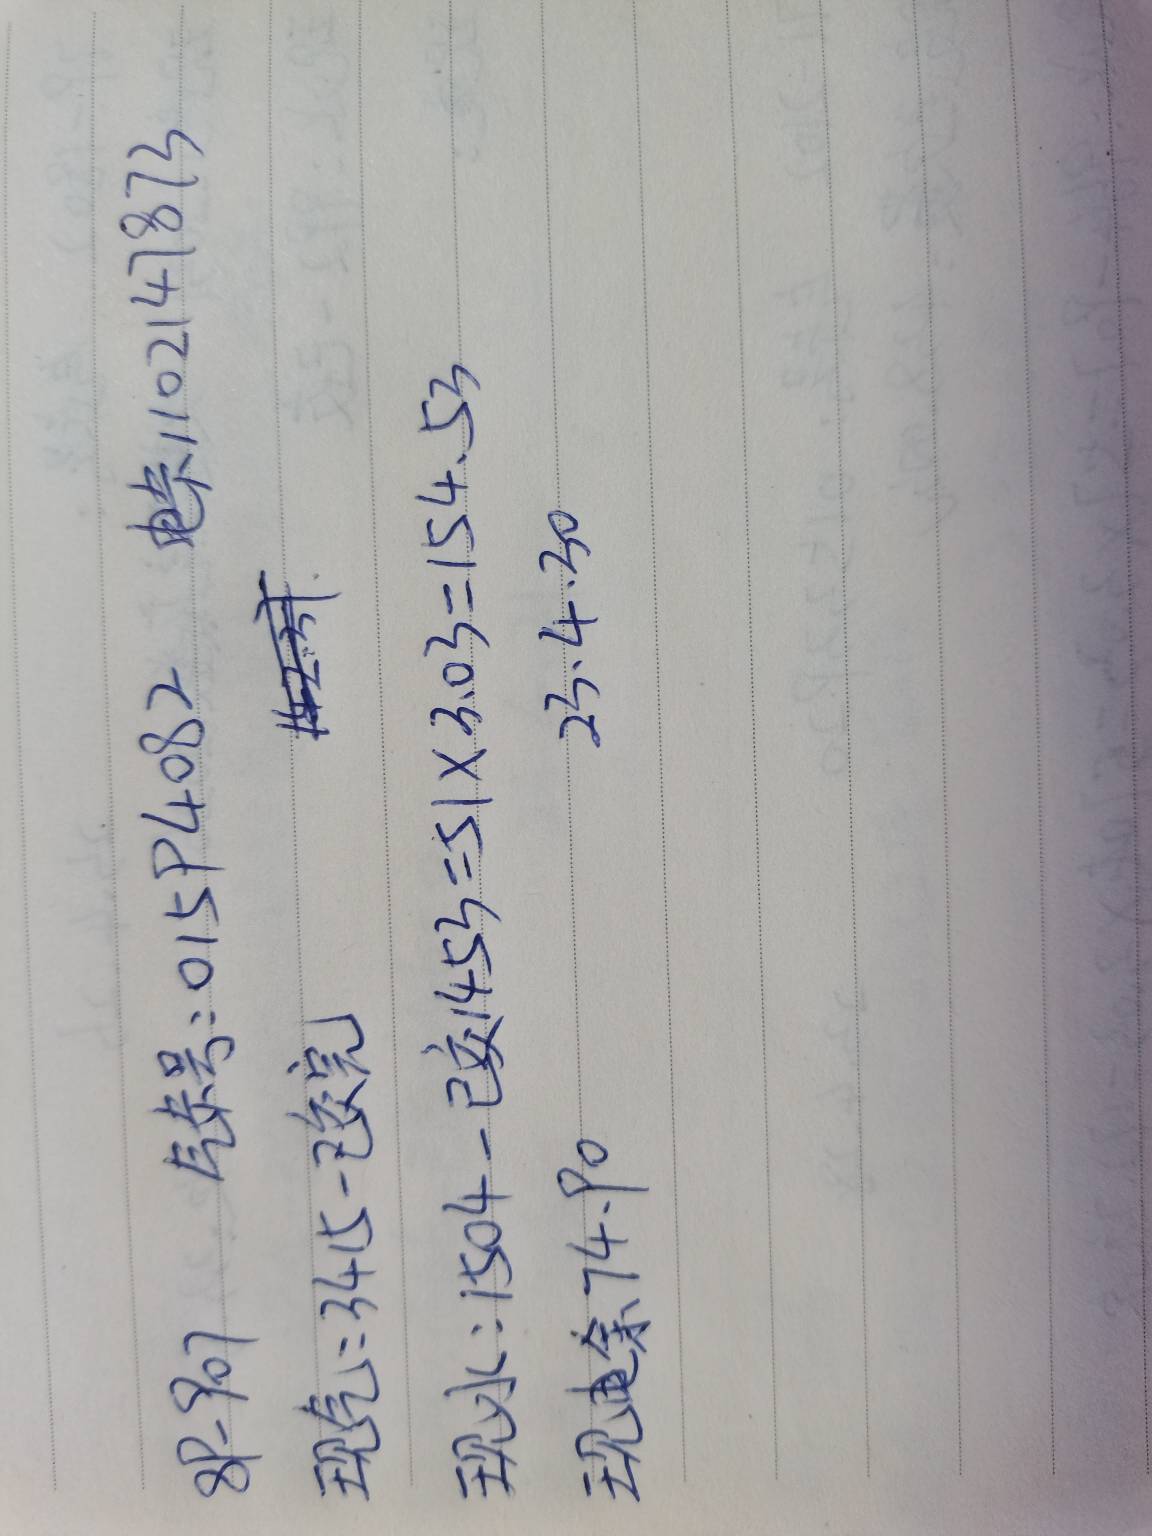 89-907 气表号:01594082 电表1102147873
现气:3415-已交完
现水:1504-已交1453=51×3.03=154.53
现电余74.90 23.4.30